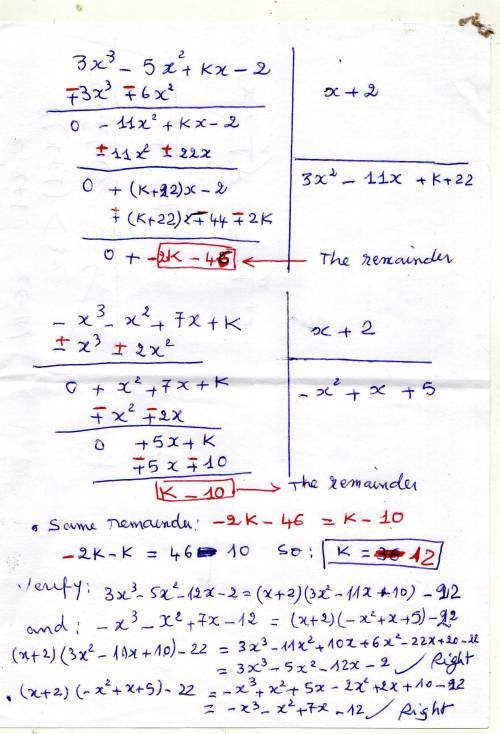 3x³ - 5x² + Kx - 2
∓3x³ ∓6x²
x + 2
0 - 11x² + Kx - 2
± 11x² ± 22x
3x² - 11x + K+22
0 + (K+22)x - 2
∓(K+22)x ∓44 ∓2K
0 + -2K - 46 ← The remainder
- x³ - x² + 7x + K
± x³ ± 2x²
x + 2
0 + x² + 7x + K
- x² + x + 5
∓x² ∓2x
0 +5x + K
∓5x ∓10
K - 10 → The remainder
• Same remainder: -2K - 46 = K - 10
-2K - K = 46 - 10 So: K = 12
Verify: 3x³ - 5x² - 12x - 2 = (x+2)(3x² - 11x + 10) - 22
and: - x³ - x² + 7x - 12 = (x+2)(-x² + x + 5) - 22
(x+2)(3x² - 11x + 10) - 22 = 3x³ - 11x² + 10x + 6x² - 22x + 20 - 22
= 3x³ - 5x² - 12x - 2 ✓ Right
• (x+2)(-x² + x + 5) - 22 = -x³ + x² + 5x - 2x² + 2x + 10 - 22
= -x³ - x² + 7x - 12 ✓ Right